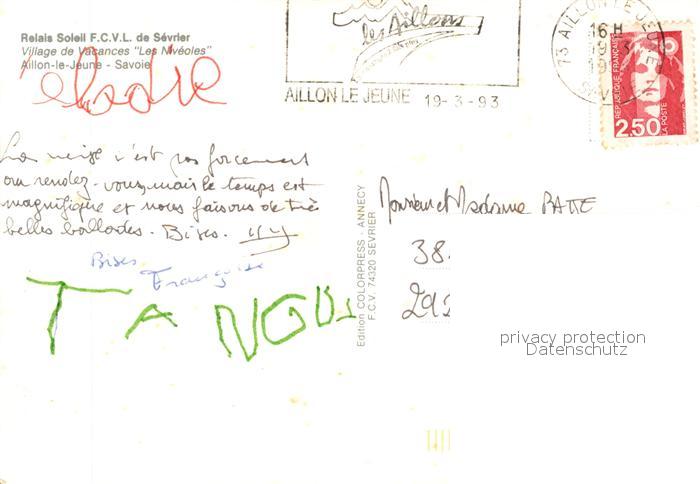 Relais Soleil F.C.V.L. de Sévrier
Village de Vacances "Les Nivéoles"
Aillon-le-Jeune - Savoie
elodie
les Aillons
AILLON LE JEUNE 19-3-93
73 AILLON LE JEUNE
16 H
REPUBLIQUE FRANÇAISE
LA POSTE
2,50
La neige n'est pas forcement
au rendez-vous, mais le temps est
magnifique et nous faisons de très
belles ballades. Bises.
Bises
Françoise
TANGUY
Edition COLORPRESS - ANNECY
F.C.V. 74320 SEVRIER
Monsieur et Madame BATTE
38
292
privacy protection
Datenschutz